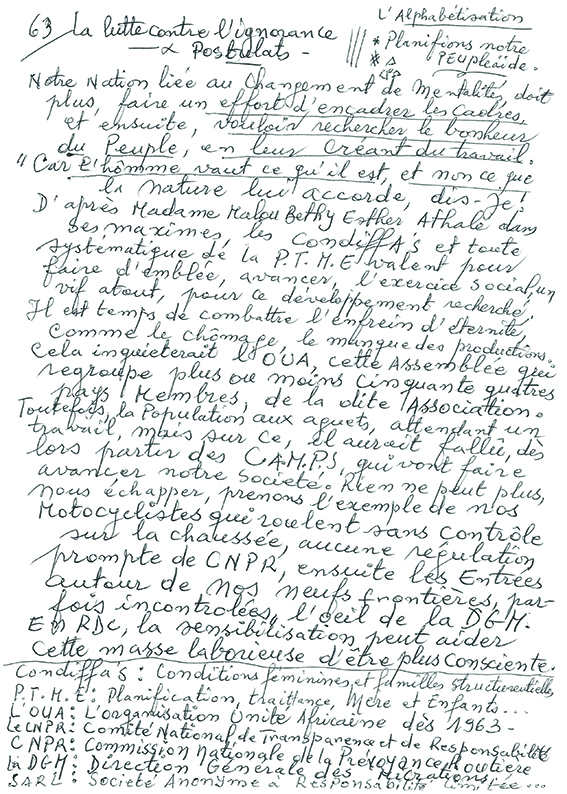 63 La lutte contre l'ignorance
∝ Postulats -
L'Alphabétisation
* Planifions notre
* PEUpleäide.
Notre Nation liée au Changement de Mentalité, doit
plus, faire un effort d'encadrer les Cadres,
et ensuite, vouloir rechercher le bonheur
du Peuple, en leur Créant du travail.
"Car l'hômme vaut ce qu'il est, et non ce que
la nature lui accorde, dis-je!
D'après Madame Malou Bethy Esther Athale dans
ses maximes, les Condiffa's et toute
systématique de la P.T.M.E valent pour
faire d'emblée, avancer, l'exercice social, un
vif atout, pour ce développement recherché.
Il est temps de combattre l'enfrein d'éternité,
Comme le chômage, le manque des productions.
Cela inquièterait l'OUA, cette Assemblée qui
regroupe plus ou moins cinquante quatres
pays Membres, de la dite Association.
Toutefois, la Population aux aguets, attendant un
travail, mais sur ce, il aurait fallu, dès
lors partir des C.A.M.P.S, qui vont faire
avancer notre Société. Rien ne peut plus,
nous échapper, prenons l'exemple de nos
Motocyclistes qui roulent sans contrôle
sur la chaussée, aucune régulation
prompte de CNPR, ensuite les Entrées
autour de nos neufs frontières, par-
fois incontrolées, l'oeil de la DGM.
En RDC, la sensibilisation peut aider
cette masse laborieuse d'être plus consciente.
Condiffa's : Conditions féminines, et familles structurentielles
P.T.M.E : Planification, traittance, Mère et Enfants...
L'OUA : L'organisation Unité Africaine dès 1963-
Le CNPR : Comité National de Transparence et de Responsabilité
CNPR : Commission Nationale de la Prévoyance Routière
la DGM : Direction Générale des Migrations,
SARL : Société Anonyme à Responsabilité Limitée...